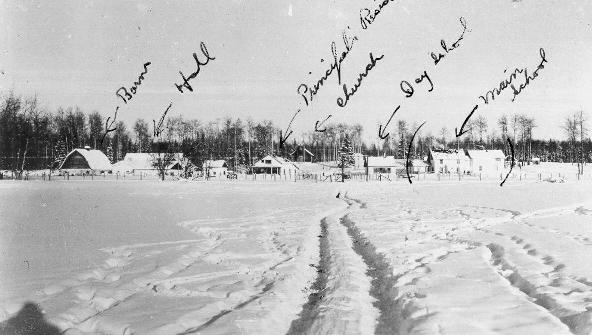 Barn
Hall
Principal's Resid
church
Day school
main
school